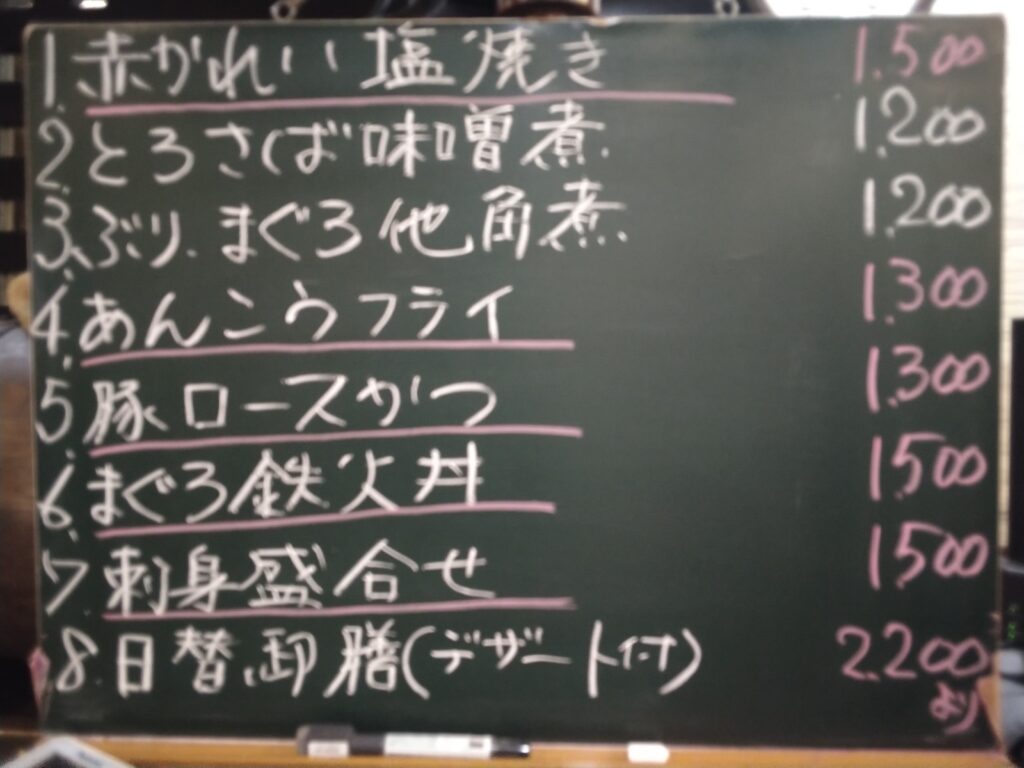 1. 赤かれい 塩焼き 1.500
2. とろさば味噌煮 1.200
3. ぶり、まぐろ他角煮 1.200
4. あんこうフライ 1.300
5. 豚ロースかつ 1.300
6. まぐろ鉄火丼 1.500
7. 刺身盛合せ 1.500
8. 日替.卸膳(デザート付) 2.200
より